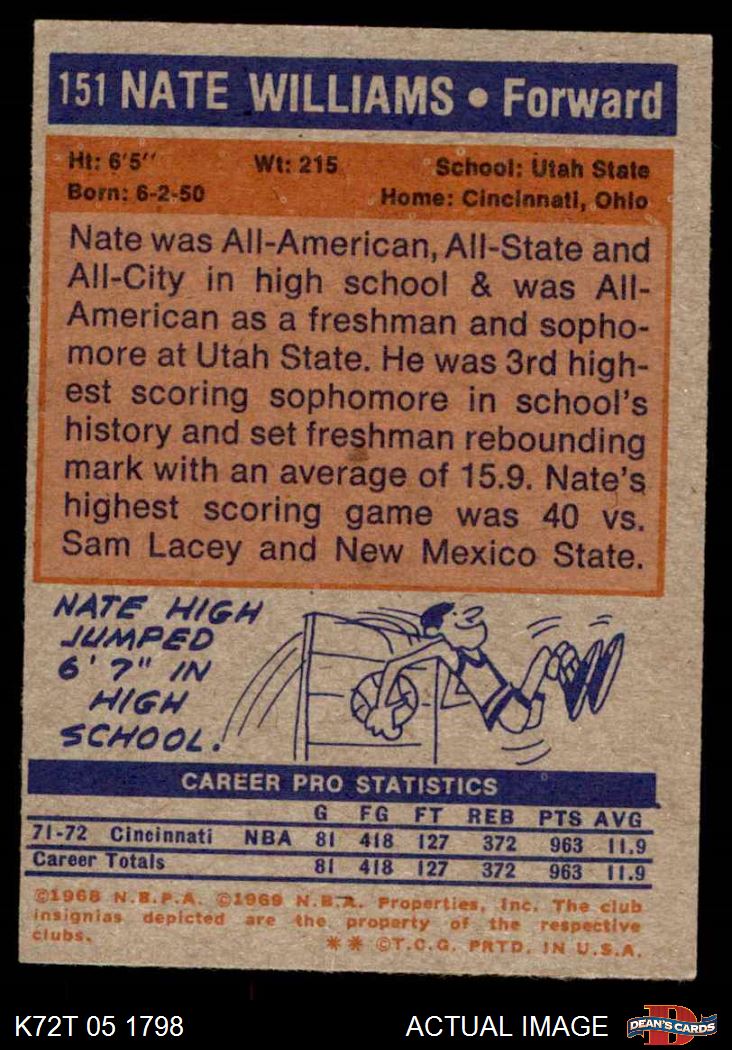 151 NATE WILLIAMS • Forward
Ht: 6'5'' Wt: 215 School: Utah State
Born: 6-2-50 Home: Cincinnati, Ohio
Nate was All-American, All-State and
All-City in high school & was All-
American as a freshman and sopho-
more at Utah State. He was 3rd high-
est scoring sophomore in school's
history and set freshman rebounding
mark with an average of 15.9. Nate's
highest scoring game was 40 vs.
Sam Lacey and New Mexico State.
NATE HIGH
JUMPED
6' 7" IN
HIGH
SCHOOL.
CAREER PRO STATISTICS
G FG FT REB PTS AVG
71-72 Cincinnati NBA 81 418 127 372 963 11.9
Career Totals 81 418 127 372 963 11.9
©1968 N.B.P.A. ©1969 N.B.A. Properties, Inc. The club
insignias depicted are the property of the respective
clubs. ** ©T.C.G. PRTD. IN U.S.A.
K72T 05 1798 ACTUAL IMAGE D DEAN'S CARDS